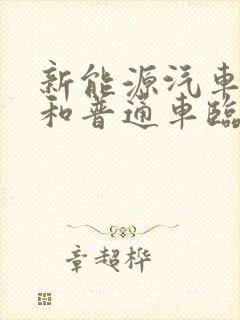 新能源汽車
和普通車臨
章超桦